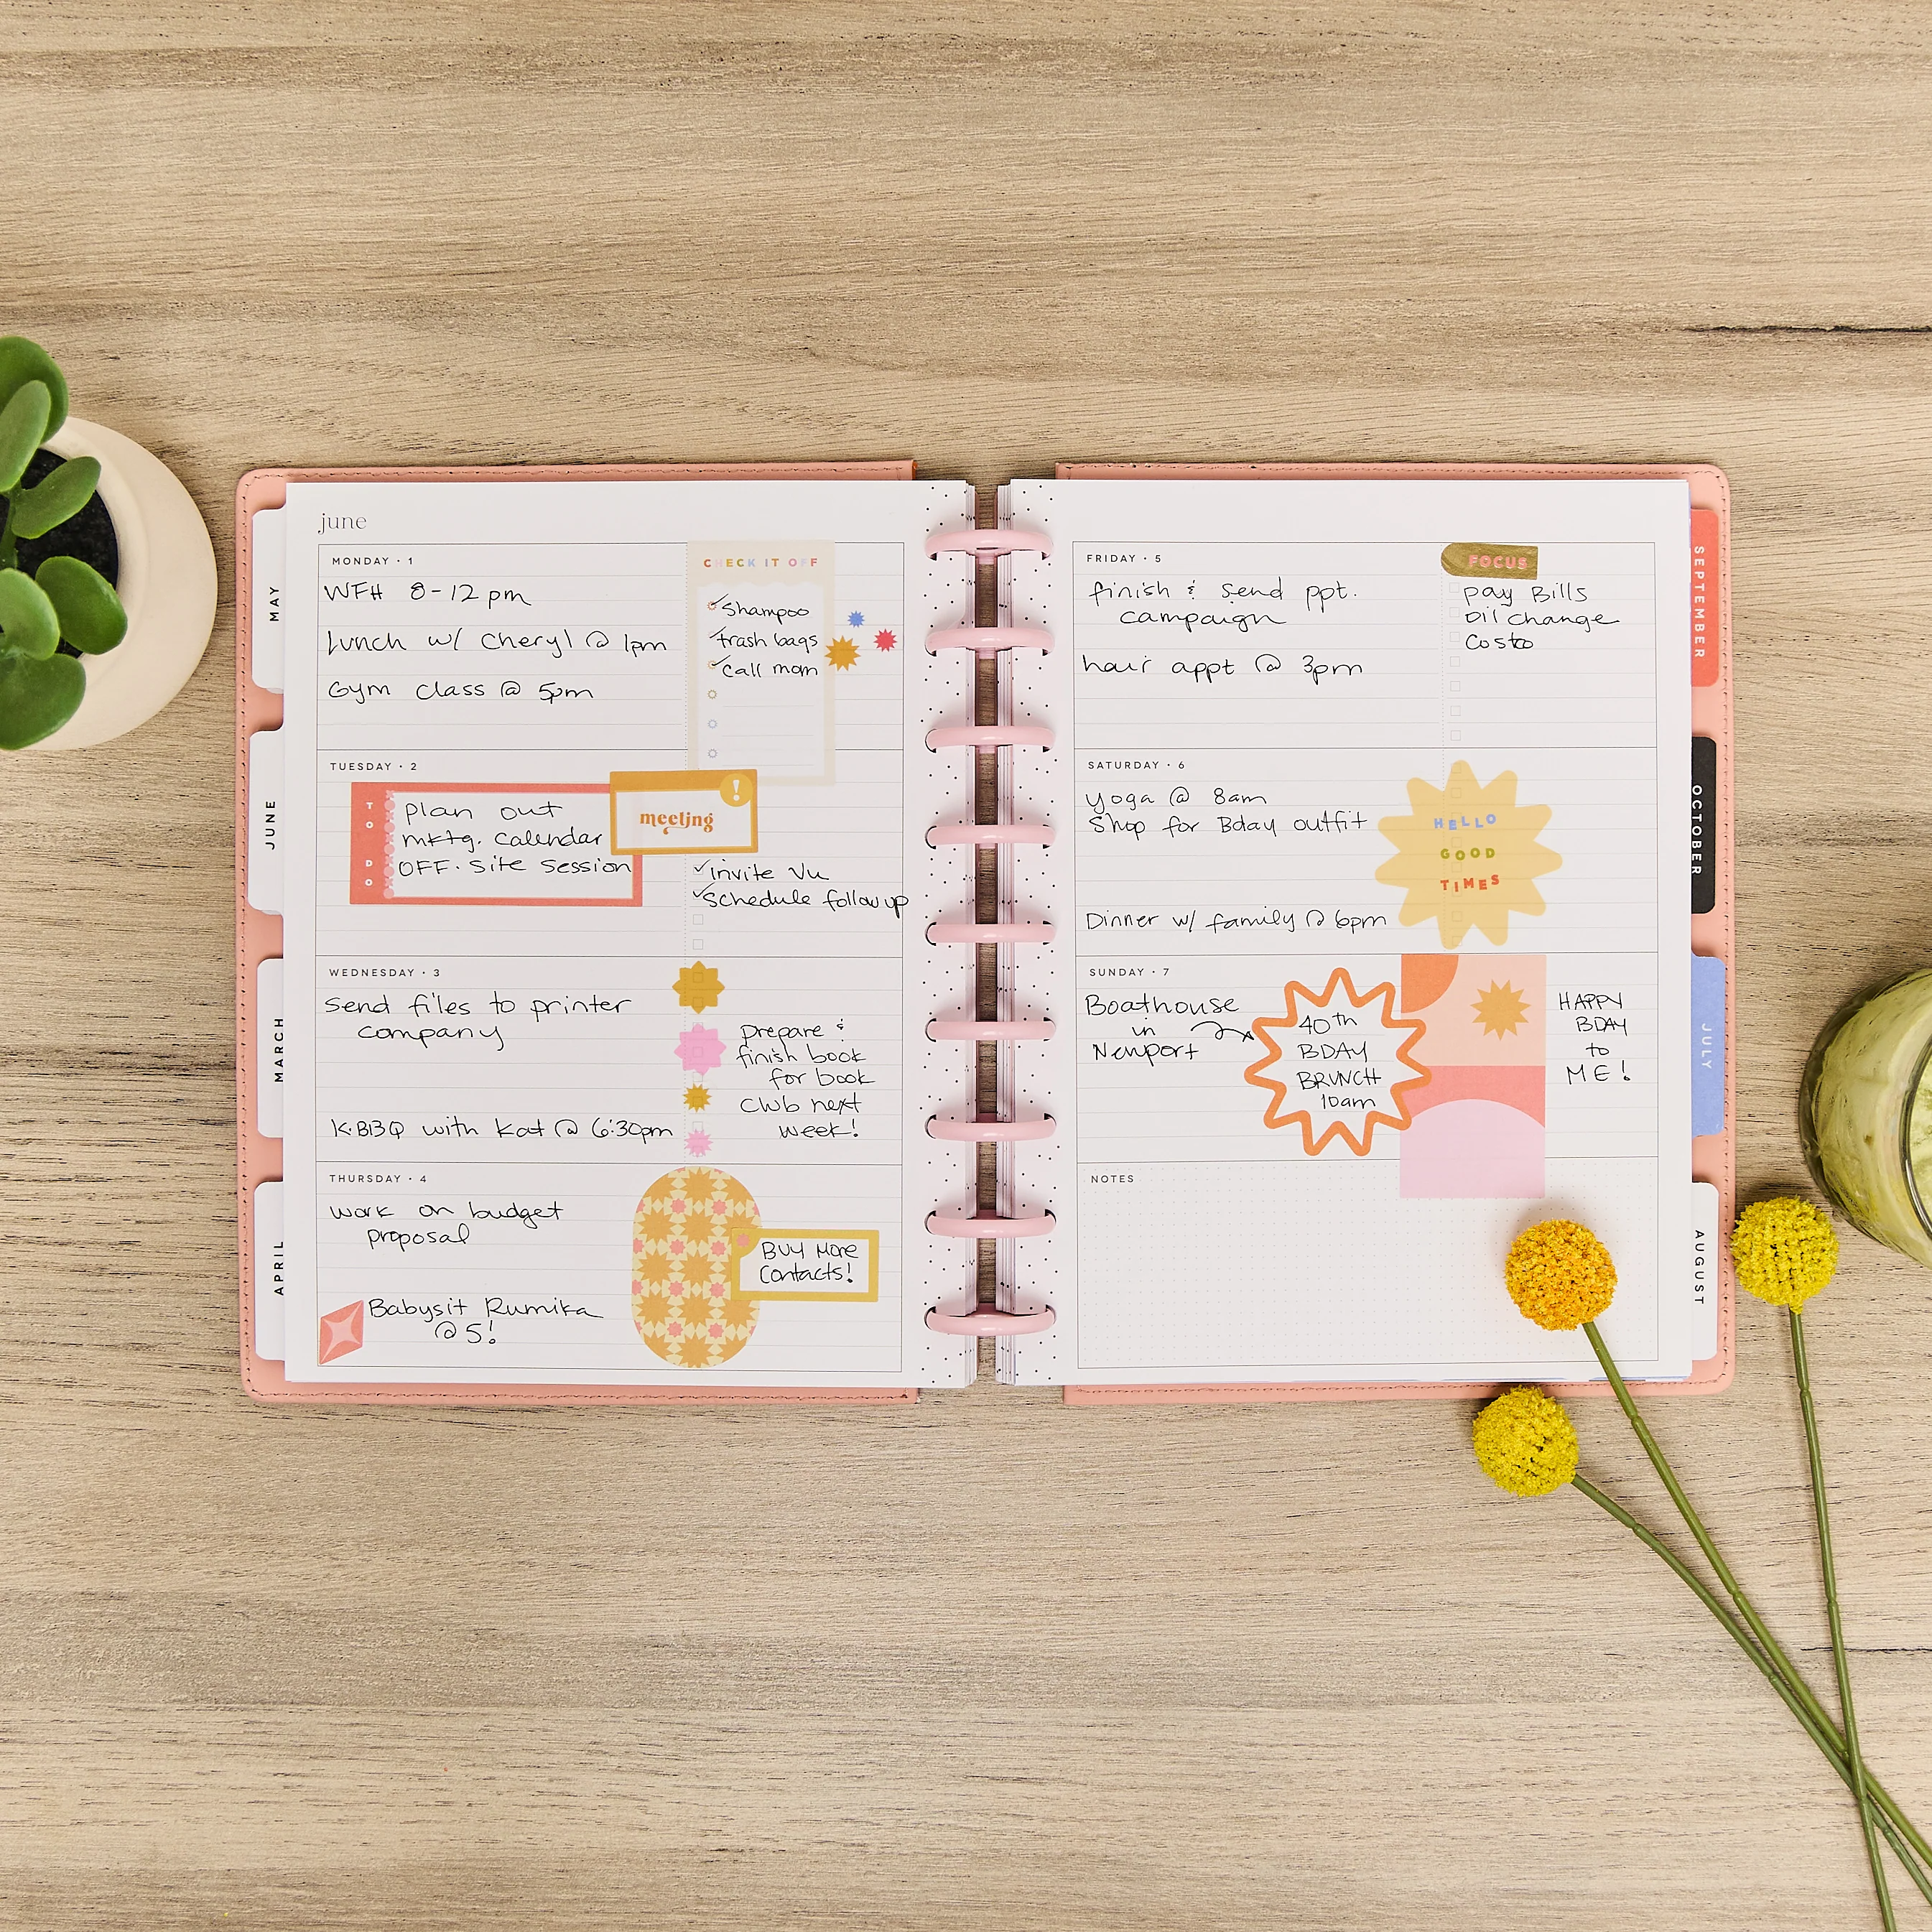 june
MONDAY · 1
WFH 8-12 pm
Lunch w/ Cheryl @ 1pm
Gym class @ 5pm
CHECK IT OFF
Shampoo
trash bags
Call mom
TUESDAY · 2
TO DO
plan out
mktg. calendar
OFF. site session
meeting
!
invite Vu
Schedule follow up
WEDNESDAY · 3
Send files to printer
company
K·BBQ with Kat @ 6:30pm
prepare &
finish book
for book
club next
week!
THURSDAY · 4
work on budget
proposal
Babysit Rumika
@ 5!
BUY More
Contacts!
FRIDAY · 5
finish & send ppt.
campaign
hair appt @ 3pm
FOCUS
pay Bills
oil change
Costco
SATURDAY · 6
yoga @ 8am
Shop for Bday outfit
Dinner w/ family @ 6pm
HELLO
GOOD
TIMES
SUNDAY · 7
Boathouse
in
Newport
40th
BDAY
BRUNCH
10am
HAPPY
BDAY
to
ME!
NOTES
MAY
JUNE
MARCH
APRIL
SEPTEMBER
OCTOBER
JULY
AUGUST